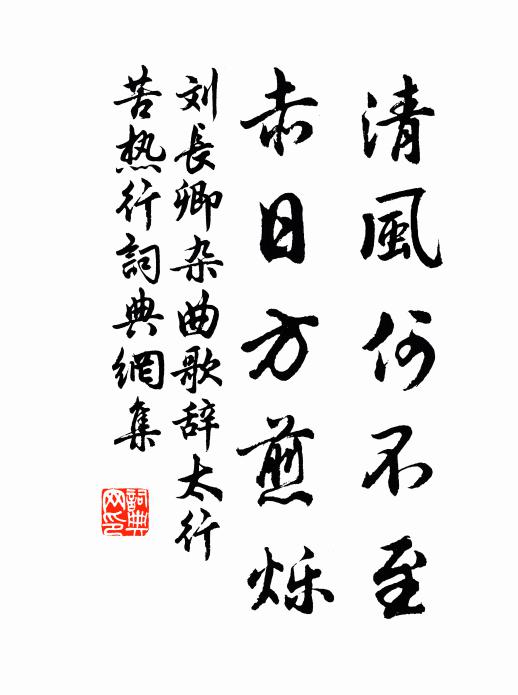 清風何不至
赤日方煎烁
刘長卿杂曲歌辞太行
苦热行詞典網集
詞典網印